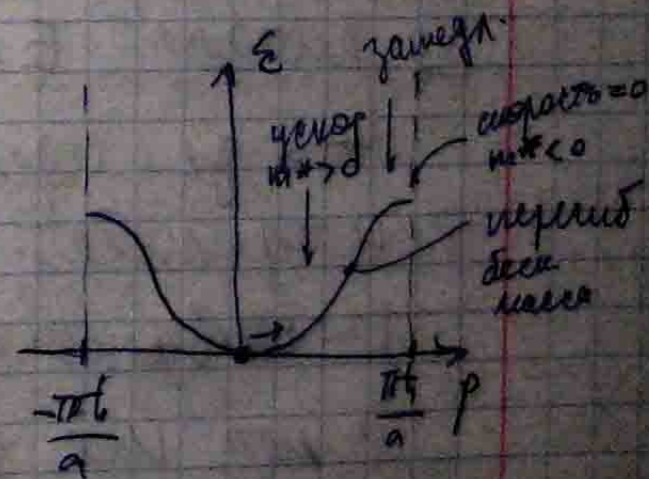 ε
замедл.
ускор
m*>0
скорость=0
m*<0
перегиб
беск.
масса
-πħ
a
πħ
a
p